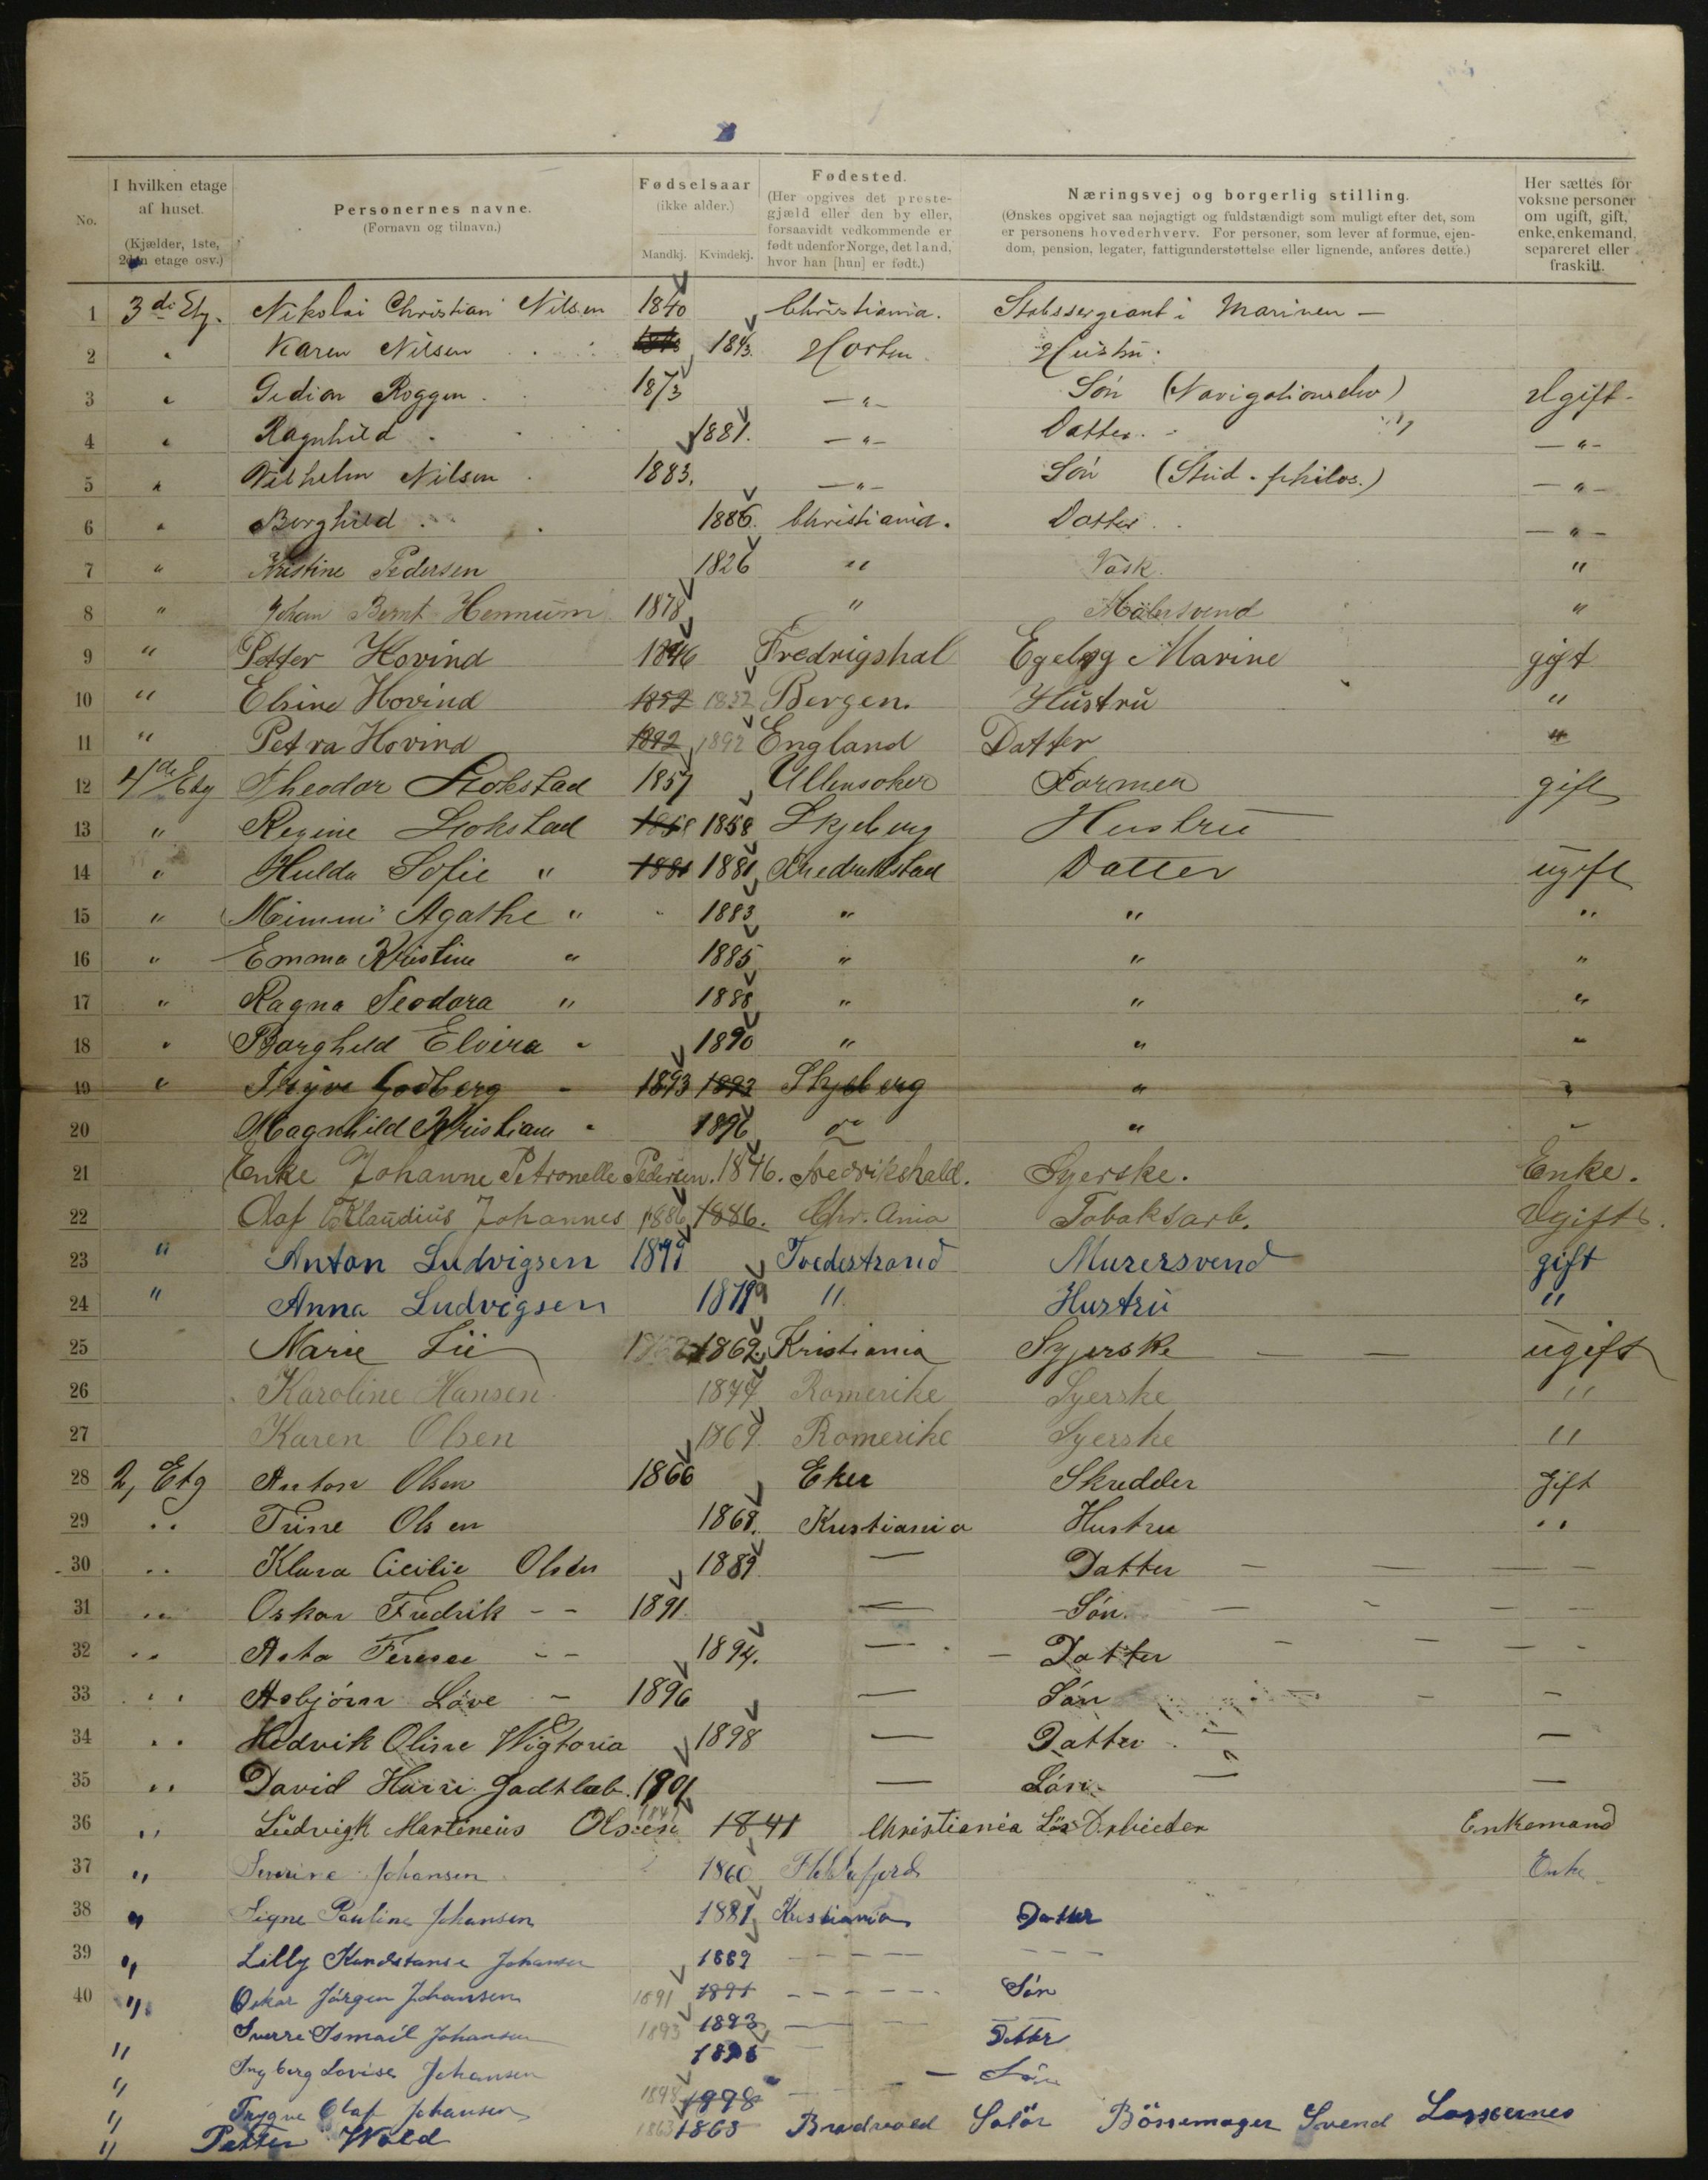 No.
I hvilken etage af huset. (Kjælder, 1ste, 2den etage osv.)
Personernes navne. (Fornavn og tilnavn.)
Fødselsaar (ikke alder.) Mandkj. Kvindekj.
Fødested. (Her opgives det prestegjæld eller den by eller, forsaavidt vedkommende er født udenfor Norge, det land, hvor han [hun] er født.)
Næringsvej og borgerlig stilling. (Ønskes opgivet saa nøjagtigt og fuldstændigt som muligt efter det, som er personens hovederhverv. For personer, som lever af formue, ejendom, pension, legater, fattigunderstøttelse eller lignende, anføres dette.)
Her sættes for voksne personer om ugift, gift, enke, enkemand, separeret eller fraskilt.
1 3die Etg. Nikolai Christian Nilsen 1840 Christiania. Stabssergeant i Marinen —
2 " Karen Nilsen 1843. Horten Hustru.
3 " Gedion Roggen 1873 — " — Sön (Navigationselev) Ugift
4 " Ragnhild 1881. — " — Datter — " —
5 " Vilhelm Nilsen 1883. — " — Sön (Stud. philos.) — " —
6 " Borghild 1886. Christiania. Datter — " —
7 " Kristine Pedersen 1826 " Vask "
8 " Johan Bernt Hennum 1878 " Malersvend "
9 " Petter Hovind 1846 Fredrigshal Marine gift
10 " Elsine Hovind 1852 1852 Bergen. Hustru "
11 " Petra Hovind 1892 1892 England Datter "
12 4de Etg Theodor Stokstad 1857 Ullensoker Former gift
13 " Regine Stokstad 1858 1858 Skjeberg Hustru
14 " Hulda Sofie " 1881 1881 Fredrikstad Datter ugift
15 " Mimmi Agathe " 1883 " " "
16 " Emma Kristine " 1885 " " "
17 " Ragna Teodora " 1888 " " "
18 " Borghild Elvira " 1890 " " "
19 " Trÿve Godberg " 1893 1893 Skjeberg " "
20 Magnhild Kristiane " 1896 do " "
21 Enke Johanne Petronelle Pedersen. 1846. Fredrikshald. Syerske. Enke.
22 Olaf Klaudius Johannes 1886 1886. Chr. ania Tobaksarb. Ugift.
23 " Anton Ludvigsen 1877 Tvedestrand Murersvend gift
24 " Anna Ludvigsen 1879 " Hustru "
25 Marie Lie 1862. Kristiania Syerske — — ugift
26 Karoline Hansen 1877 Romerike Syerske "
27 Karen Olsen 1869. Romerike Syerske "
28 2, Etg Anton Olsen 1866 Eker Skredder Gift
29 " Trine Olsen 1868. Kristiania Hustru "
30 " Klara Cicilie Olsen 1889 — Datter — — —
31 " Oskar Fredrik - - 1891. — Sön. — - — —
32 " Asta - - 1894. — Datter - — — -
33 " Asbjörn Löve - 1896 — Sön — - —
34 " Hedvik Oline Wigtoria 1898 — Datter — —
35 " David Harri Godtlab. 1901 — Sön — —
36 " Ludvigk Martineius Olsen 1841 1841 Christiania Lös Arbieder Enkemand
37 " Johansen 1860 Enke
38 " Signe Pauline Johansen 1881 Kristiania Datter
39 " Lilly Konstanse Johansen 1889 - - - - - - - -
40 " Oskar Jörgen Johansen 1891 1891 - - - - - - Sön
" Sverre Ismail Johansen 1893 1893 — — — —
" Ingberg Lovise Johansen 1895 — Datter
" Trygve Olaf Johansen 1898 1898 - - - — Sön
" Petter Wold 1863 1863 Brodvold Solör Börsemager Svend